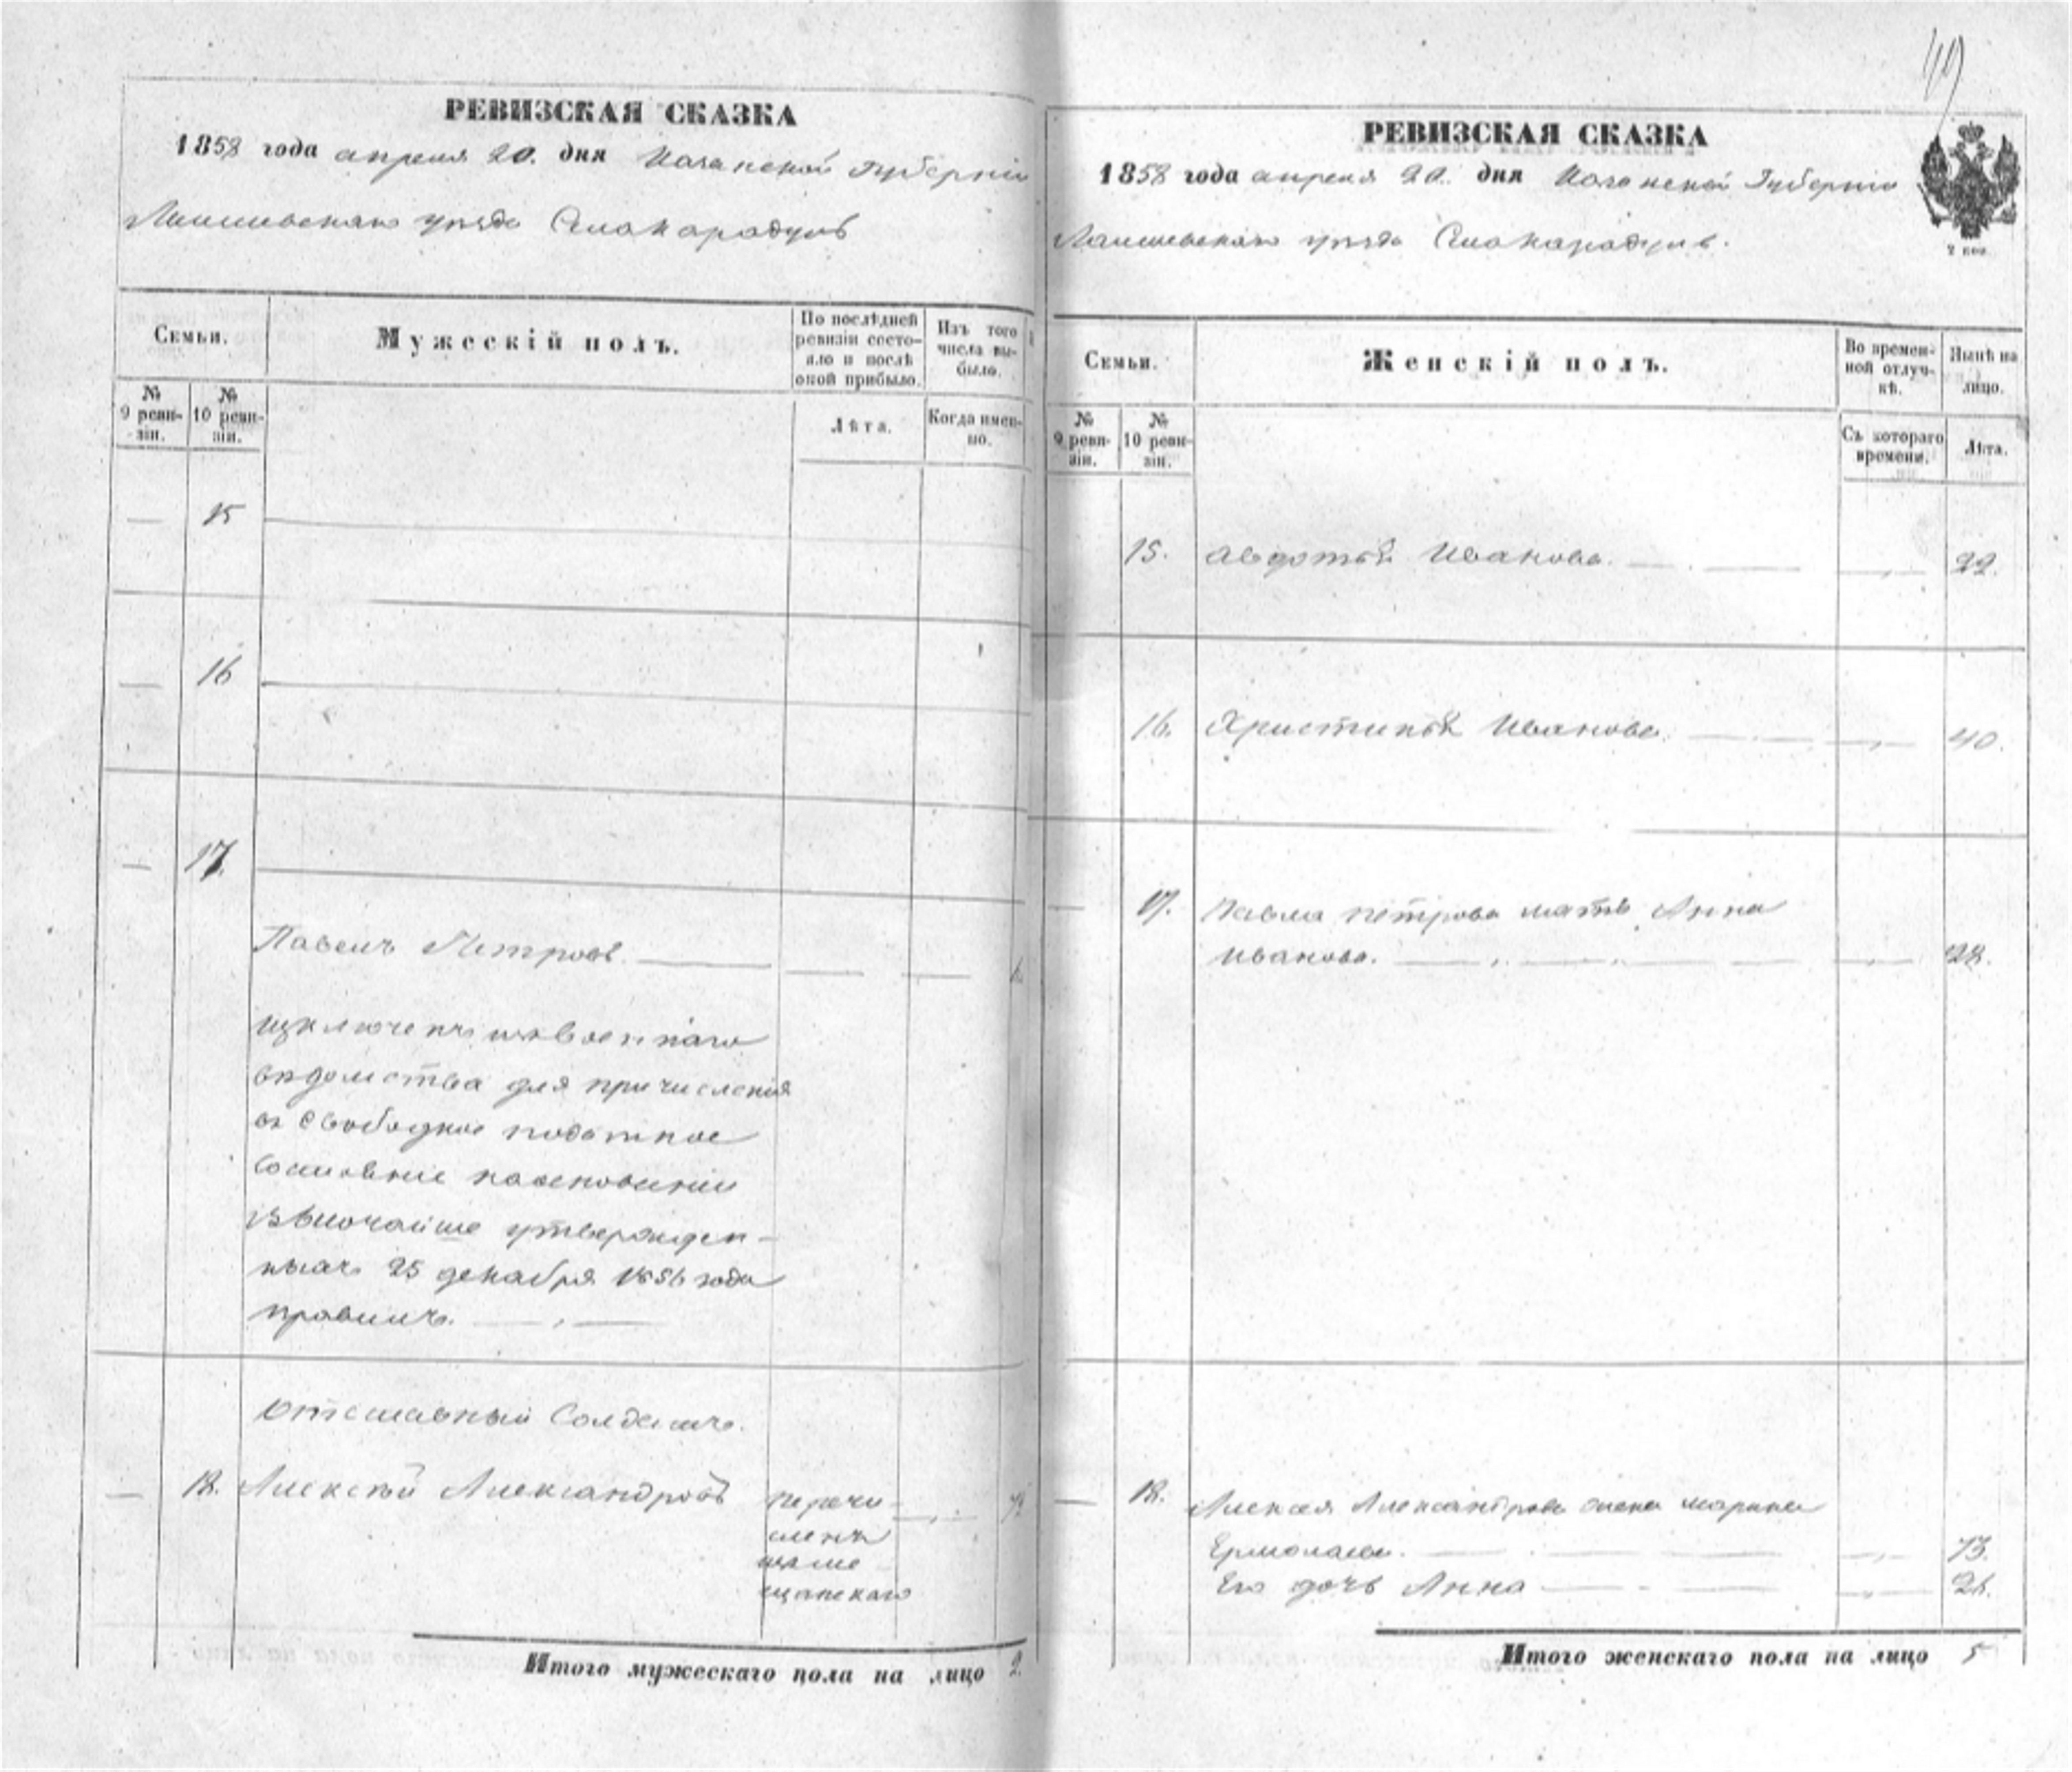 РЕВИЗСКАЯ СКАЗКА
1858 года апреля 20. дня Казанской Губерніи
Лаишевскаго уезда
Семьи.
Мужескій полъ.
По послѣдней ревизіи состояло и послѣ оной прибыло.
Изъ того числа выбыло.
№ 9 ревизіи.
№ 10 ревизіи.
Лѣта.
Когда именно.
— 15
— 16
— 17.
Павелъ Петровъ.
изключенъ изъ военнаго
ведомства для причисленія
въ свободное податное
сословіе на основаніи
Высочайше утвержден-
ныхъ 25 декабря 1856 года
правилъ.
Отставный Солдатъ.
— 18. Алексѣй Александровъ перечи-
сленъ
изъ ме
щанскаго
Итого мужескаго пола на лицо 2.
119
РЕВИЗСКАЯ СКАЗКА
1858 года апреля 20. дня Казанской Губерніи
Лаишевскаго уезда
2 коп.
Семьи.
Женскій полъ.
Во временной отлучкѣ.
Нынѣ на лицо.
№ 9 ревизіи.
№ 10 ревизіи.
Съ котораго времени.
Лѣта.
15. Авдотья Иванова. 22.
16. Христинья Иванова. 40.
— 17. Павла Петрова мать Анна
Иванова. 28.
— 18. Алексея Александрова жена Марина
Ермолаева. 73.
Его дочь Анна
Итого женскаго пола на лицо 5